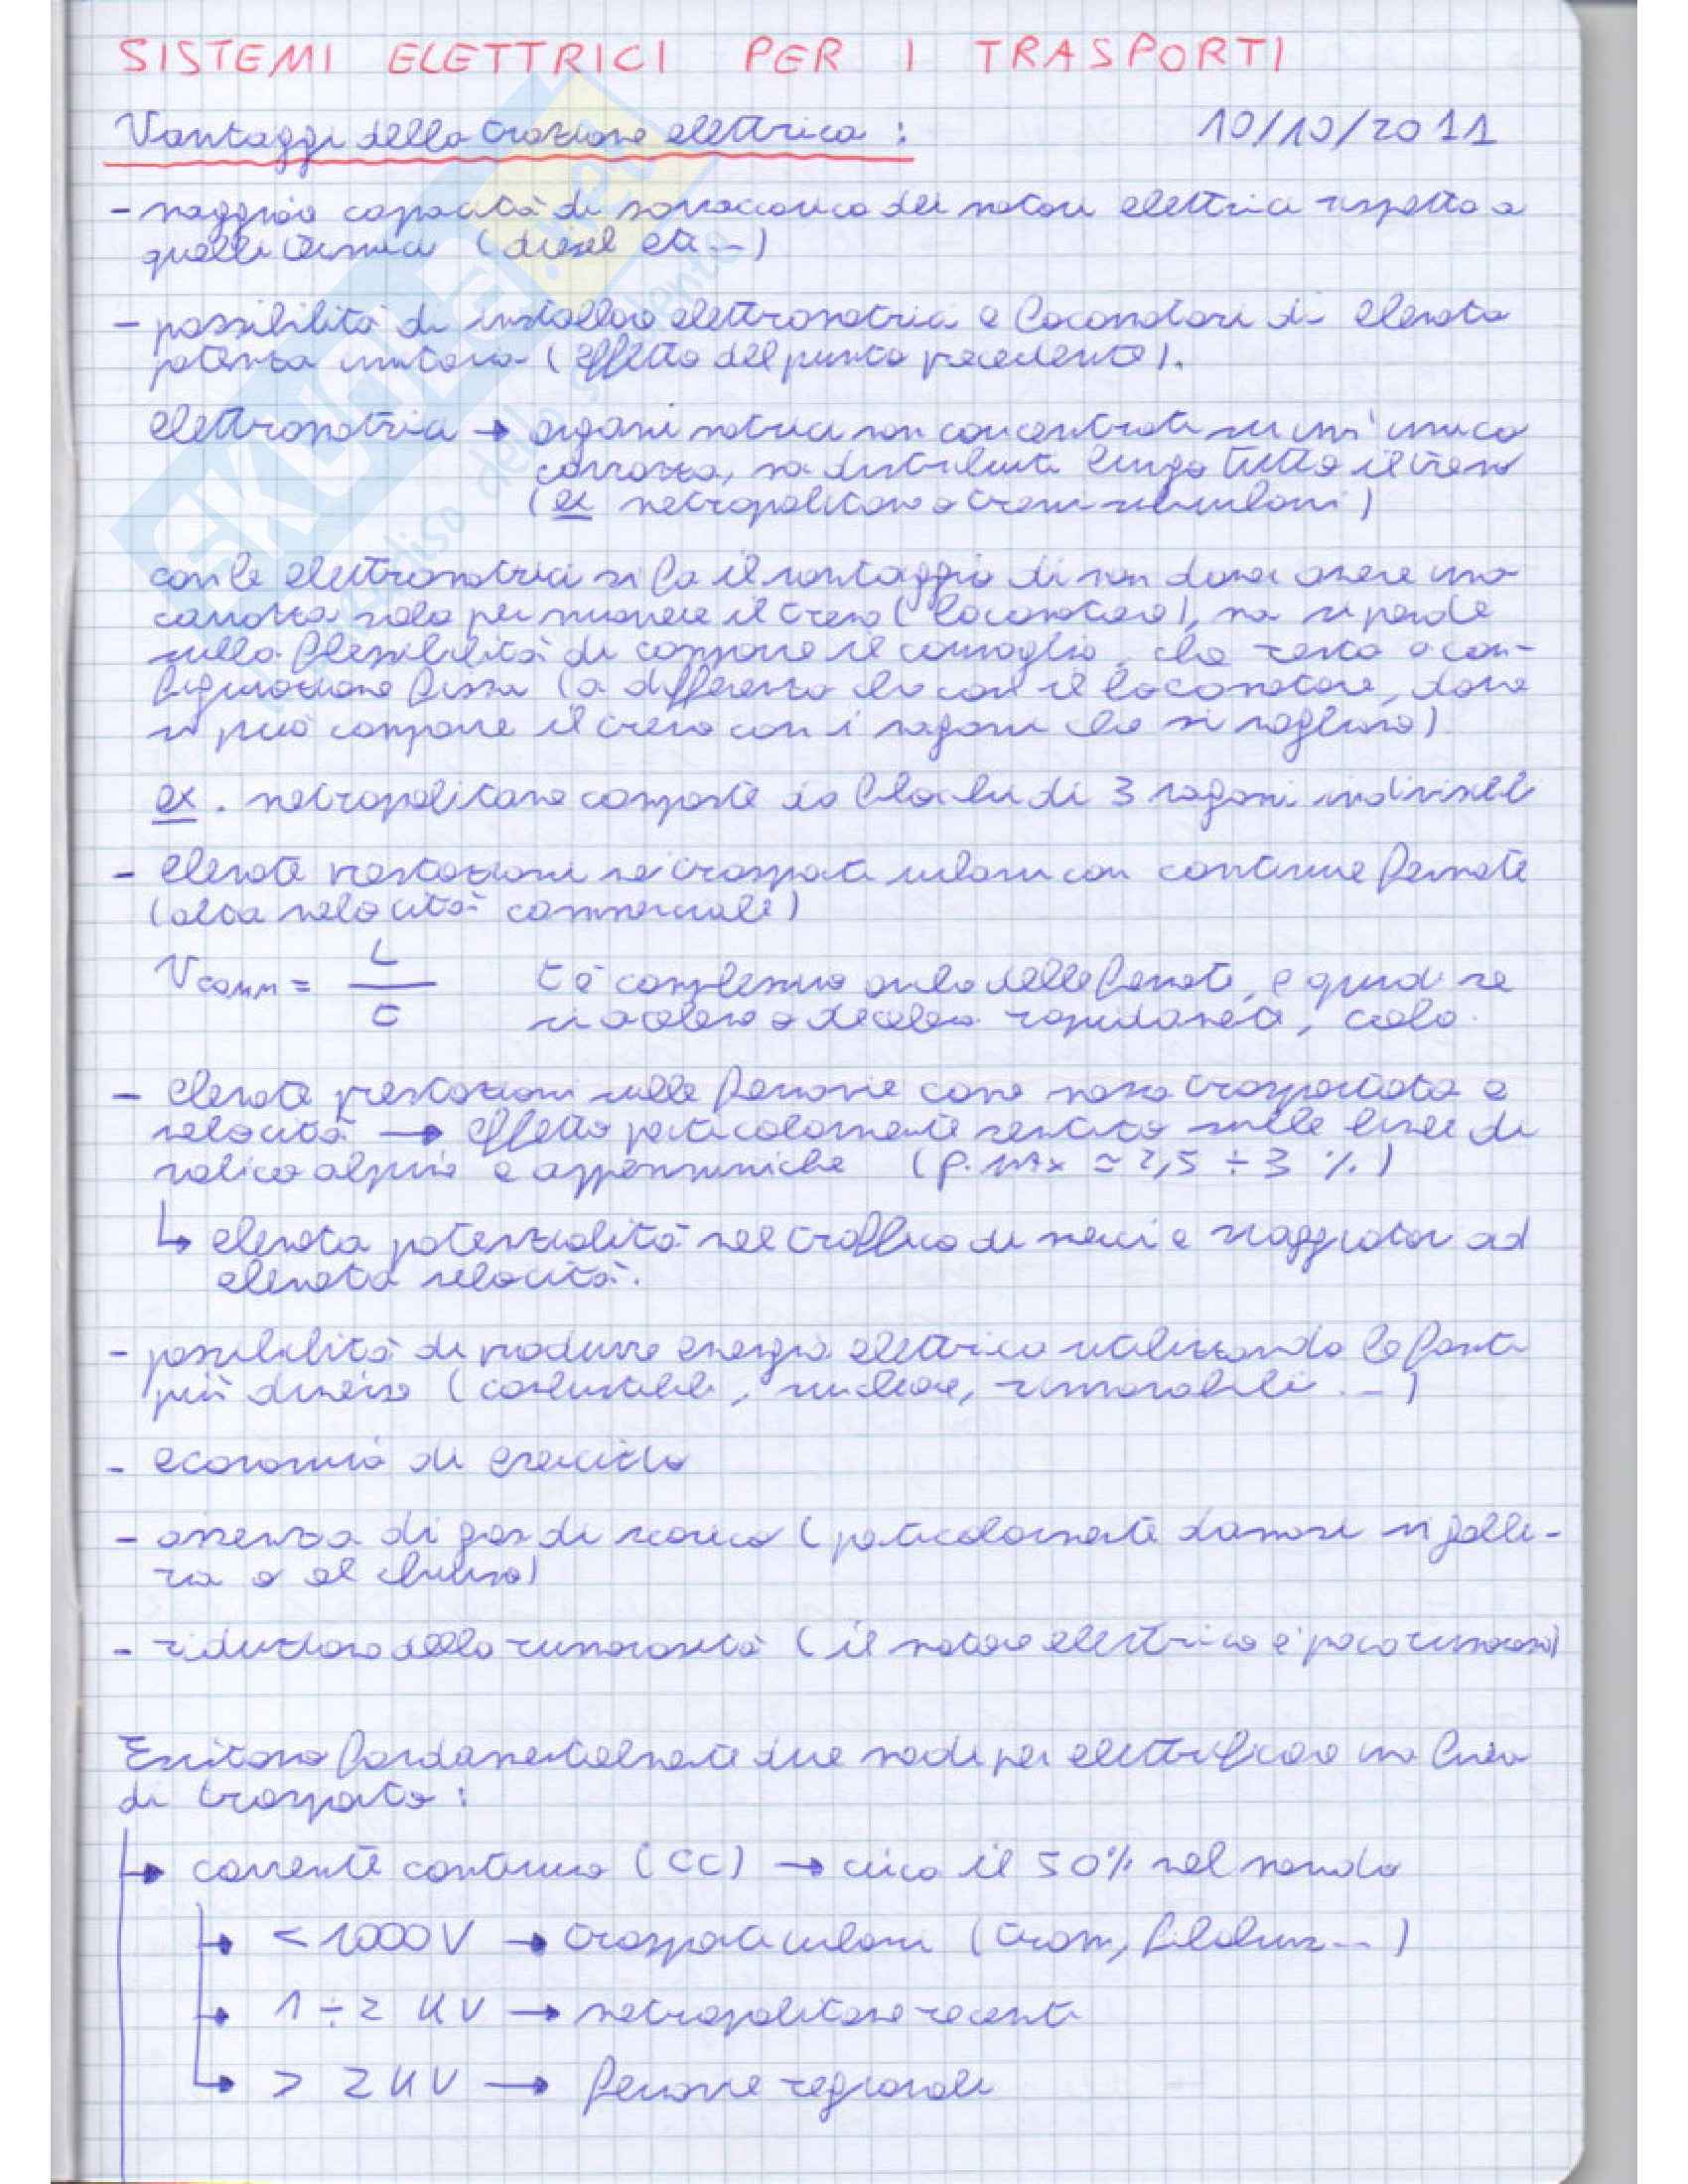 SISTEMI ELETTRICI PER I TRASPORTI
Vantaggi della trazione elettrica :
10/10/2011
- maggiore capacità di sovraccarico dei motori elettrici rispetto a
quelli termici (diesel etc...)
- possibilità di installare elettromotrici e locomotori di elevata
potenza unitaria (effetto del punto precedente).
elettromotrici → organi motrici non concentrati su un'unica
carrozza, ma distribuiti lungo tutto il treno
(ex metropolitane o treni suburbani)
con le elettromotrici si ha il vantaggio di non dover avere una
carrozza solo per muovere il treno (locomotore), ma si perde
sulla flessibilità di comporre il convoglio, che resta a con-
figurazione fissa (a differenza che con il locomotore, dove
si può comporre il treno con i vagoni che si vogliono)
ex. metropolitane composte da blocchi di 3 vagoni indivisibili
- elevate prestazioni nei trasporti urbani con continue fermate
(alta velocità commerciale)
Vcomm = L / t
t è complessivo anche delle fermate, e quindi se
si accelera e decelera rapidamente, cala.
- elevate prestazioni sulle ferrovie come massa trasportata e
velocità → effetto particolarmente sentito sulle linee di
valico alpine e appenniniche (p. MAX ≃ 2,5 ÷ 3 %)
↳ elevata potenzialità nel traffico di merci e viaggiatori ad
elevata velocità.
- possibilità di produrre energia elettrica utilizzando le fonti
più diverse (combustibili, nucleare, rinnovabili ...)
- economia di esercizio
- assenza di gas di scarico (particolarmente dannosi in galle-
ria o al chiuso)
- riduzione della rumorosità (il motore elettrico è poco rumoroso)
Esistono fondamentalmente due modi per elettrificare una linea
di trasporto :
↳ corrente continua (CC) → circa il 50% nel mondo
↳ < 1000 V → trasporti urbani (tram, filobus ...)
↳ 1 ÷ 2 KV → metropolitane recenti
↳ > 2 KV → ferrovie regionali
SKUOLA.net